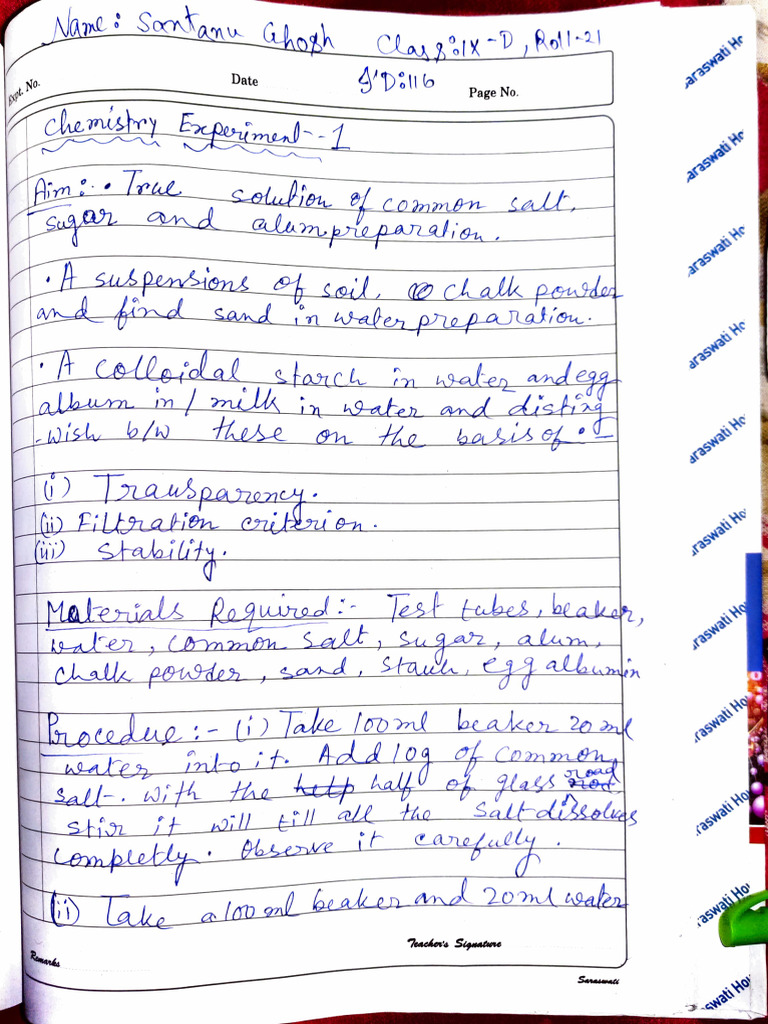 Name: Santanu Ghosh Class: IX-D, Roll-21
Expt. No. Date I'D:116 Page No.
Chemistry Experiment-1
Aim: • True solution of common salt,
sugar and alum preparation.
• A suspensions of soil, chalk powder
and find sand in water preparation.
• A colloidal starch in water and egg
album in/milk in water and disting
-wish b/w these on the basis of :-
(i) Transparency.
(ii) Filtration criterion.
(iii) Stability.
Materials Required:- Test tubes, beaker,
water, common salt, sugar, alum,
chalk powder, sand, stach, egg albumin
Procedue:- (i) Take 100ml beaker 20ml
water into it. Add 10g of common
salt. with the help half of glass road
stir it will till all the salt dissolves
completly. Observe it carefully.
(ii) Take a 100ml beaker and 20ml water
Teacher's Signature
Remarks
Saraswati
Saraswati Ho
araswati Ho
araswati Ho
araswati Ho
araswati Ho
raswati Ho
raswati Ho
raswati Ho
raswati Ho
raswati Ho
swati Ho